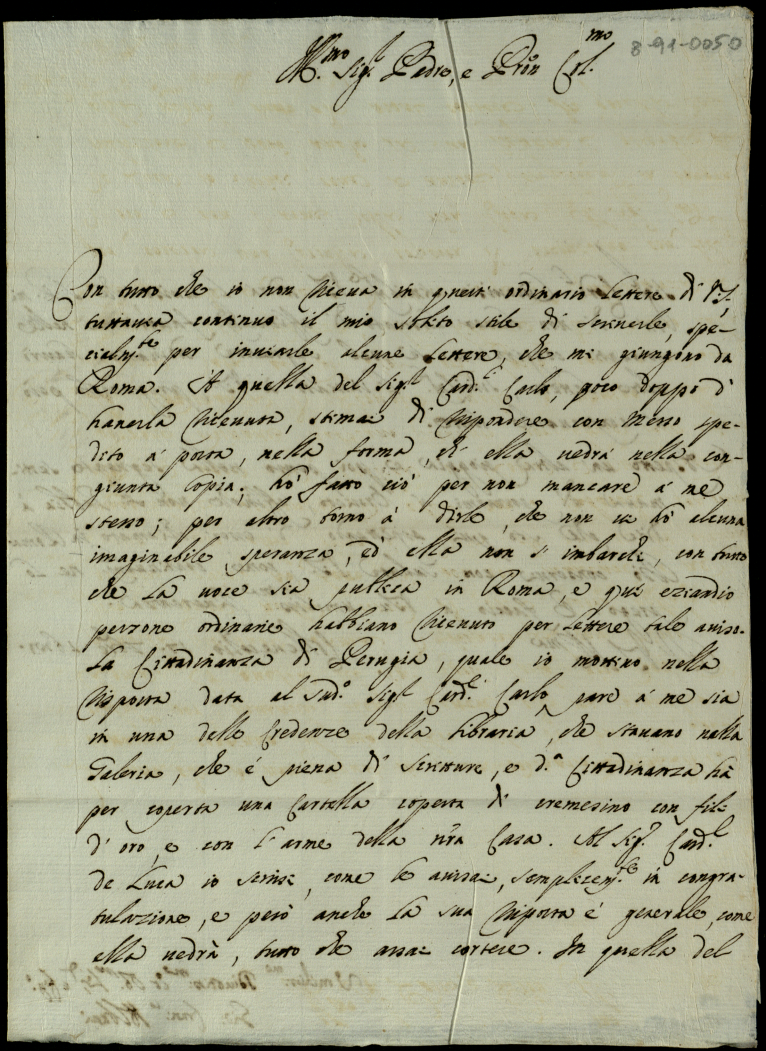 8-91-0050
Ill.mo Sig.r Padre, e Pron Col.mo
Con tutto che io non riceva in questi ordinario lettere di VS,
tuttavia continuo il mio solito stile di scriverle, spe-
cialm.te per inviarle alcune lettere, che mi giungono da
Roma. A quella del Sig.r Card.l Carlo, poco doppo d'
haverla ricevuta, stimai di rispondere con messo spe-
dito a posta, nella forma, ch' ella vedrà nella con-
giunta copia; hò fatto ciò per non mancare à me
stesso; per altro torno à dirle, che non vi hò alcuna
imaginabile speranza, ed ella non s' imbarchi, con tutto
che la voce sia publica in Roma, e quì eziandio
persone ordinarie habbiano ricevuto per lettere tale aviso.
La Cittadinanza di Perugia, quale io mottivo nella
risposta data al sud.o Sig.r Card.l Carlo, pare à me sia
in una delle Credenze della libraria, che stavano nella
Galeria, che è piena di scritture, e d.a Cittadinanza hà
per coperta una Cartella coperta di cremesino con fili
d' oro, e con l' arme della nr̃a Casa. Al Sig.r Card.l
de Luca io scrissi, come le avisai, semplicem.te in congra-
tulazione, e però anche la sua risposta è generale, come
ella vedrà, tutto che assai cortese. In quella del